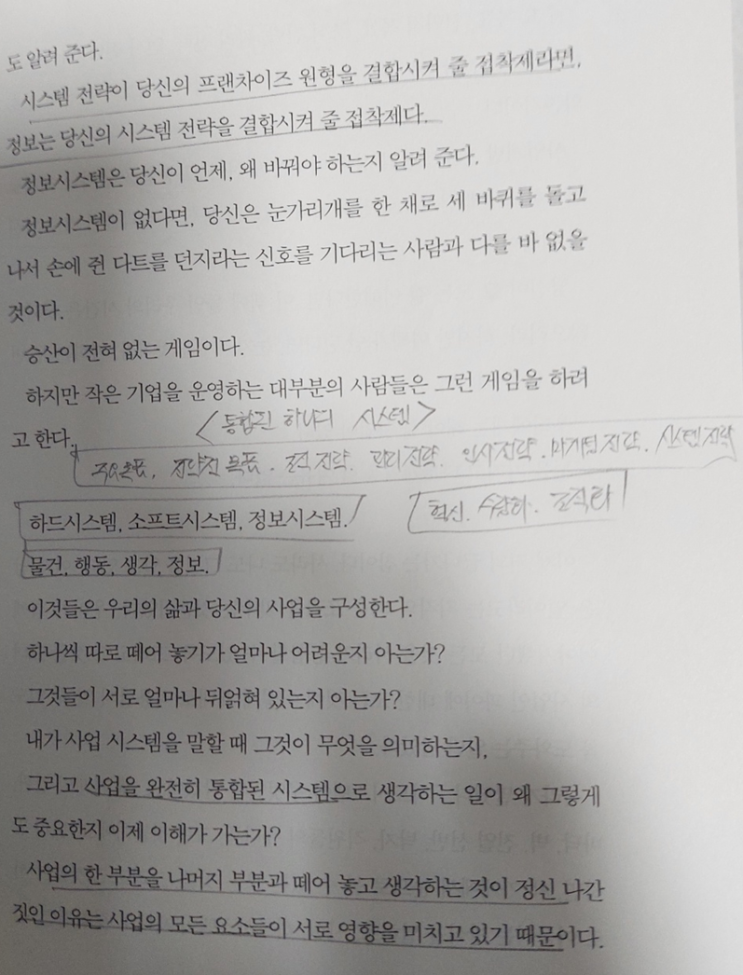 도 알려 준다.
시스템 전략이 당신의 프랜차이즈 원형을 결합시켜 줄 접착제라면,
정보는 당신의 시스템 전략을 결합시켜 줄 접착제다.
정보시스템은 당신이 언제, 왜 바꿔야 하는지 알려 준다.
정보시스템이 없다면, 당신은 눈가리개를 한 채로 세 바퀴를 돌고
나서 손에 쥔 다트를 던지라는 신호를 기다리는 사람과 다를 바 없을
것이다.
승산이 전혀 없는 게임이다.
하지만 작은 기업을 운영하는 대부분의 사람들은 그런 게임을 하려
고 한다.
<통합된 하나의 시스템>
주요목표, 전략적 목표. 조직전략. 관리전략. 인사전략. 마케팅전략. 시스템전략
하드시스템, 소프트시스템, 정보시스템.
혁신. 수량화. 조직화
물건, 행동, 생각, 정보.
이것들은 우리의 삶과 당신의 사업을 구성한다.
하나씩 따로 떼어 놓기가 얼마나 어려운지 아는가?
그것들이 서로 얼마나 뒤얽혀 있는지 아는가?
내가 사업 시스템을 말할 때 그것이 무엇을 의미하는지,
그리고 사업을 완전히 통합된 시스템으로 생각하는 일이 왜 그렇게
도 중요한지 이제 이해가 가는가?
사업의 한 부분을 나머지 부분과 떼어 놓고 생각하는 것이 정신 나간
짓인 이유는 사업의 모든 요소들이 서로 영향을 미치고 있기 때문이다.